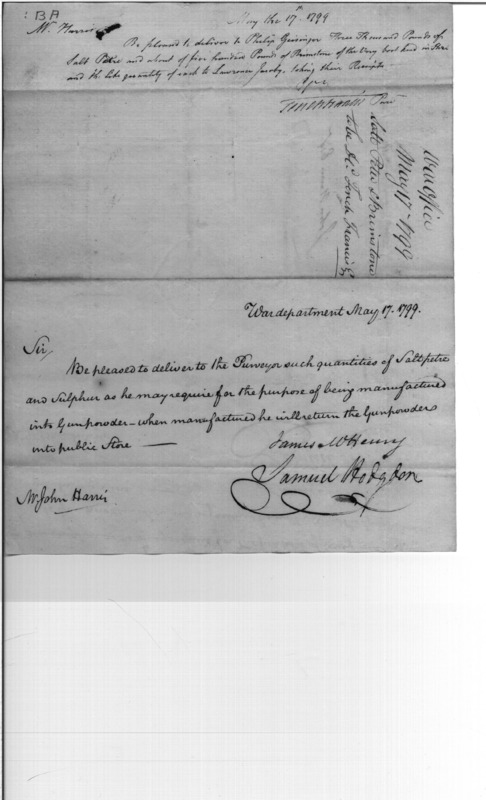 : BA
May the 17th. 1799
Mr. Harris
Be pleased to deliver to Philip Geisinger Three Thousand Pounds of
Salt Petre and about of five hundred Pounds of Brimstone of the very best kind in Store
and the like quantity of each to Lawrence Jacoby, taking their Receipts
Tench Francis Purr
War Office
May 17th 1799
Salt Petre & Brimstone
to be Dd. Tench Francis Esq
War department May 17. 1799.
Sir,
Be pleased to deliver to the Purveyor such quantities of Saltpetre
and Sulphur as he may require for the purpose of being manufactured
into Gunpowder – when manufactured he will return the Gunpowder
into public Store —
James McHenry
Samuel Hodgdon
Mr. John Harris